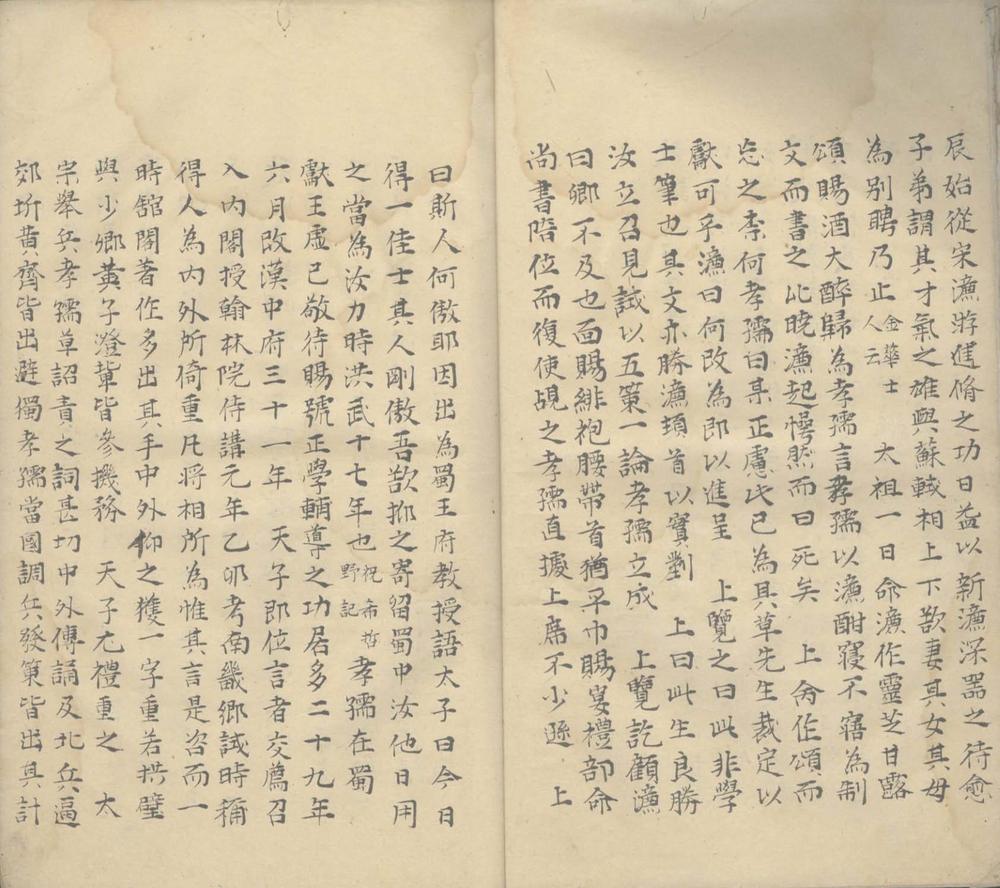 辰始從宋濂游進脩之功日益以新濂深器之待愈
子弟謂其才氣之雄與蘇軾相上下欲妻其女其母
為別聘乃止金華士人云　太祖一日命濂作靈芝甘露
頌賜酒大醉歸為孝孺言孝孺以濂酣寢不寤為制
文而書之比曉濂起愕然而曰死矣　上侖作頌而
忘之柰何孝孺曰某正慮此已為具草先生裁定以
獻可乎濂曰何改為即以進呈　上覽之曰此非學
士筆也其文亦勝濂頊首以實對　上曰此生良勝
汝立召見試以五策一論孝孺立成　上覽訖顧濂
曰卿不及也面賜緋袍腰帶首猶平巾賜宴禮部命
尚書陪位而復使覘之孝孺直據上席不少遜　上
曰斯人何傲耶因出為蜀王府教授語太子曰今日
得一佳士其人剛傲吾欲抑之寄留蜀中汝他日用
之當為汝力時洪武十七年也祝希哲野記孝孺在蜀
獻王虛已敬待賜號正學輔導之功居多二十九年
六月改漢中府三十一年　天子即位言者交薦召
入內閣授翰林院侍講元年乙卯考南畿鄉試時稱
得人為內外所倚重凡將相所為惟其言是咨而一
時舘閣著作多出其手中外仰之獲一字重若拱璧
與少卿黃子澄軰皆參機務　天子尤禮重之　太
宗舉兵孝孺草詔責之詞甚切中外傳誦及北兵逼
郊圻黃齊皆出避獨孝孺當國調兵發策皆出其計